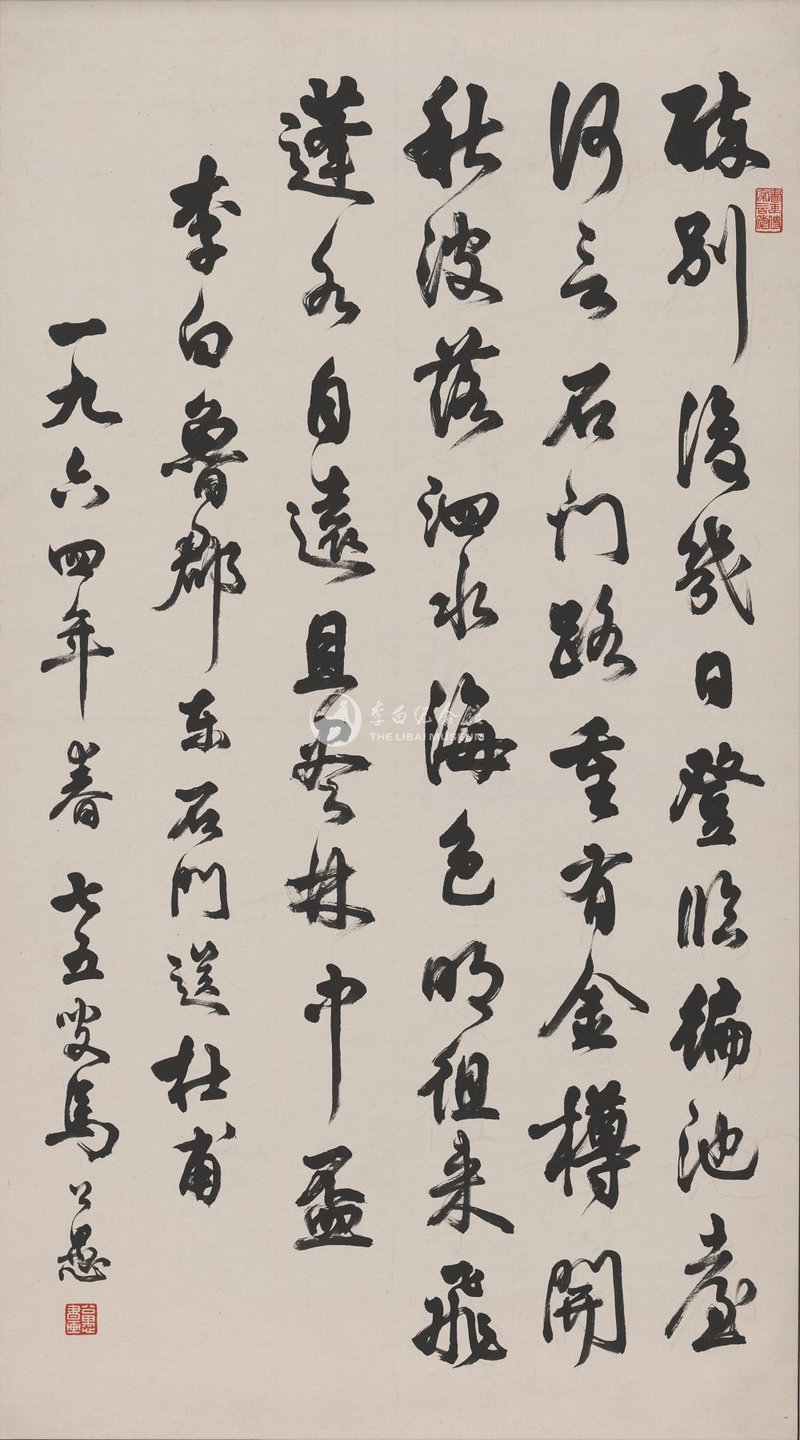 醉别復幾日登臨徧池臺
何言石门路重有金樽開
秋波落泗水海色明徂来飛
蓬各自遠且尽林中盃
李白魯郡东石門送杜甫
一九六四年春七五叟馬公愚
李白纪念馆
THE LIBAI MUSEUM